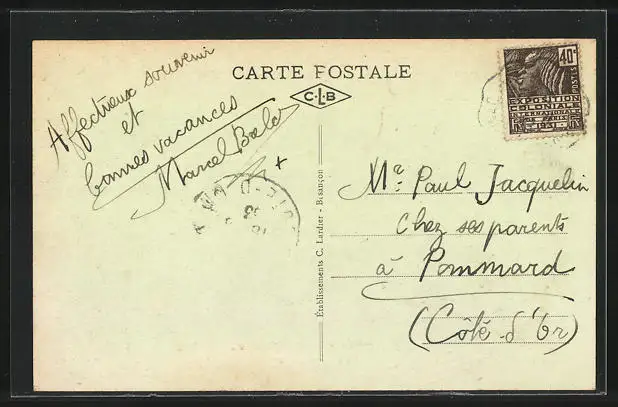 CARTE POSTALE
C·L·B
Affectueux souvenir
et
bonnes vacances
Marcel
Mr Paul Jacquelin
Chez ses parents
à Pommard
(Côte-d'Or)
Établissements C. Lardier - Besançon
40c
POSTES
EXPOSITION
COLONIALE
INTERNATIONALE
PARIS
1931